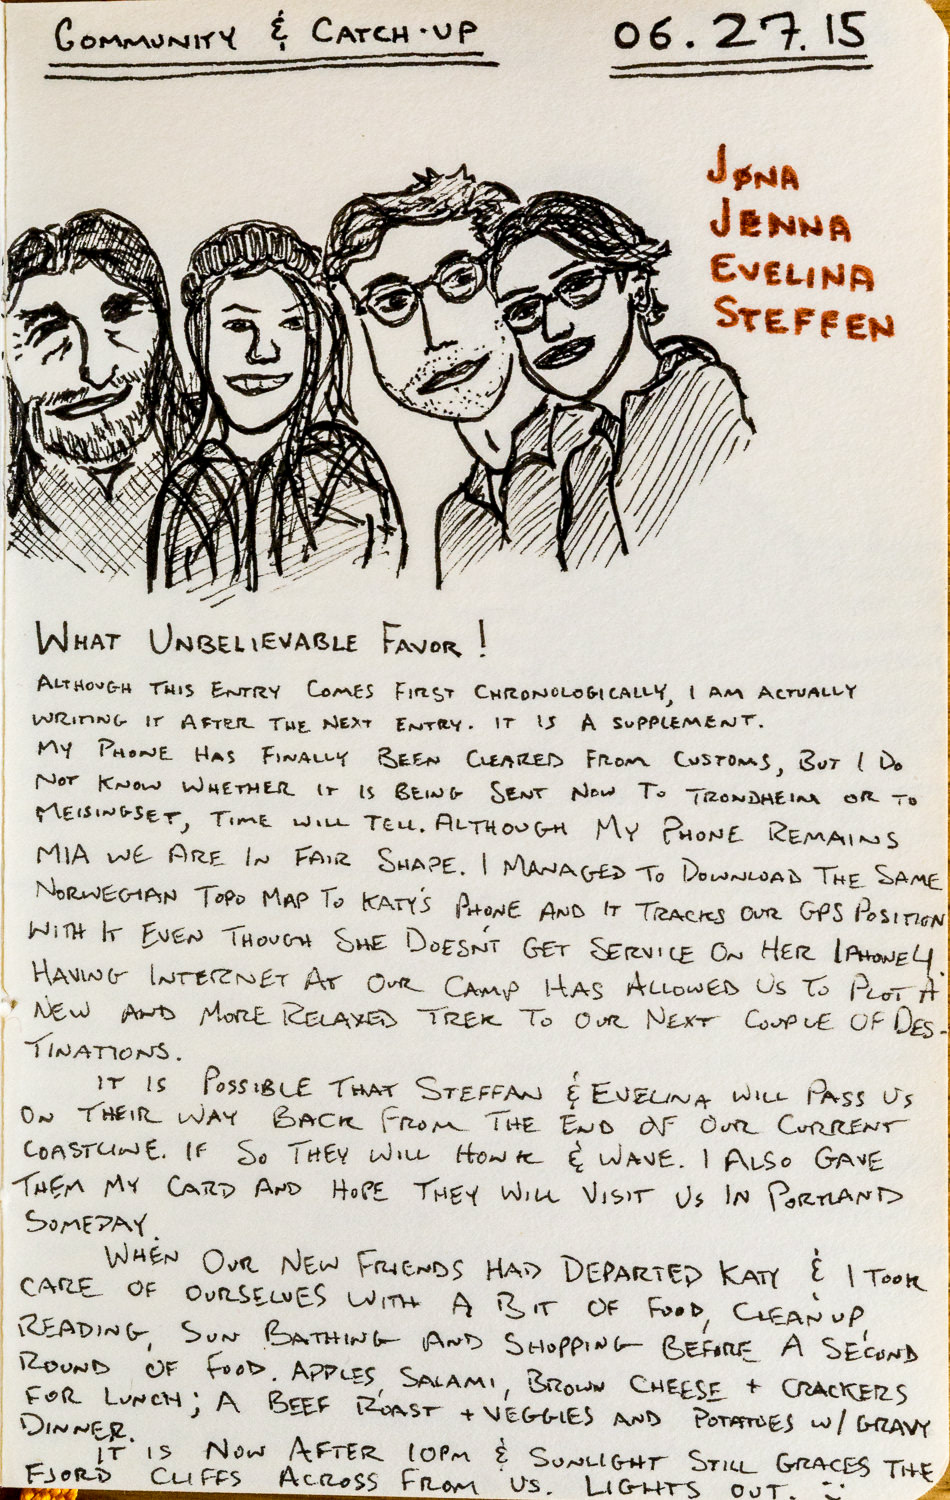 COMMUNITY & CATCH-UP 06.27.15
JØNA
JENNA
EVELINA
STEFFEN
WHAT UNBELIEVABLE FAVOR!
ALTHOUGH THIS ENTRY COMES FIRST CHRONOLOGICALLY, I AM ACTUALLY
WRITING IT AFTER THE NEXT ENTRY. IT IS A SUPPLEMENT.
MY PHONE HAS FINALLY BEEN CLEARED FROM CUSTOMS, BUT I DO
NOT KNOW WHETHER IT IS BEING SENT NOW TO TRONDHEIM OR TO
MEISINGSET, TIME WILL TELL. ALTHOUGH MY PHONE REMAINS
MIA WE ARE IN FAIR SHAPE. I MANAGED TO DOWNLOAD THE SAME
NORWEGIAN TOPO MAP TO KATY'S PHONE AND IT TRACKS OUR GPS POSITION
WITH IT EVEN THOUGH SHE DOESN'T GET SERVICE ON HER IPHONE4.
HAVING INTERNET AT OUR CAMP HAS ALLOWED US TO PLOT A
NEW AND MORE RELAXED TREK TO OUR NEXT COUPLE OF DES-
TINATIONS.
IT IS POSSIBLE THAT STEFFAN & EVELINA WILL PASS US
ON THEIR WAY BACK FROM THE END OF OUR CURRENT
COASTLINE. IF SO THEY WILL HONK & WAVE. I ALSO GAVE
THEM MY CARD AND HOPE THEY WILL VISIT US IN PORTLAND
SOMEDAY.
WHEN OUR NEW FRIENDS HAD DEPARTED KATY & I TOOK
CARE OF OURSELVES WITH A BIT OF FOOD, CLEAN UP,
READING, SUN BATHING AND SHOPPING BEFORE A SECOND
ROUND OF FOOD. APPLES, SALAMI, BROWN CHEESE + CRACKERS
FOR LUNCH; A BEEF ROAST + VEGGIES AND POTATOES W/ GRAVY
DINNER.
IT IS NOW AFTER 10PM & SUNLIGHT STILL GRACES THE
FJORD CLIFFS ACROSS FROM US. LIGHTS OUT. :)